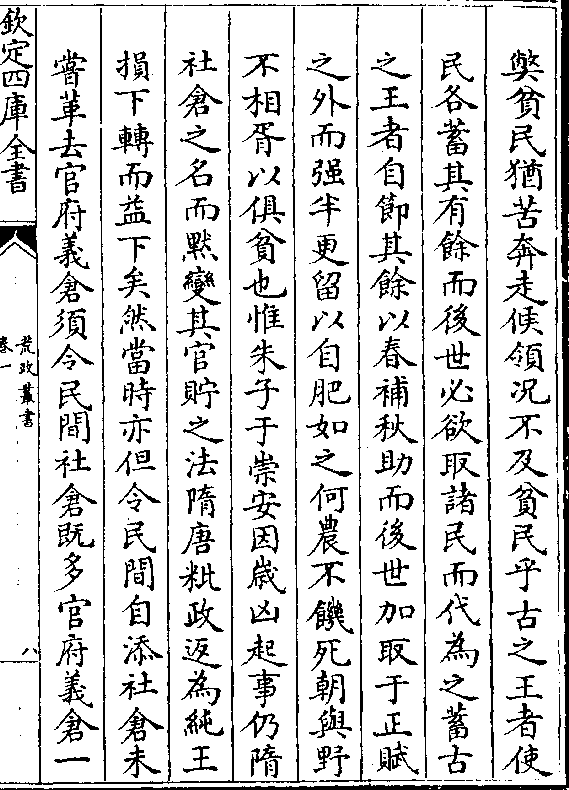 弊貧民猶苦奔走候領况不及貧民乎古之王者使
民各蓄其有餘而後世必欲取諸民而代為之蓄古
之王者自節其餘以春補秋助而後世加取于正賦
之外而强半更留以自肥如之何農不饑死朝與野
不相胥以俱貧也惟朱子于崇安因歲凶起事仍隋
社倉之名而黙變其官貯之法隋唐粃政返為純王
損下轉而益下矣然當時亦但令民間自添社倉未
嘗革去官府義倉須令民間社倉既多官府義倉一
欽定四庫全書
荒政叢書
卷一
八